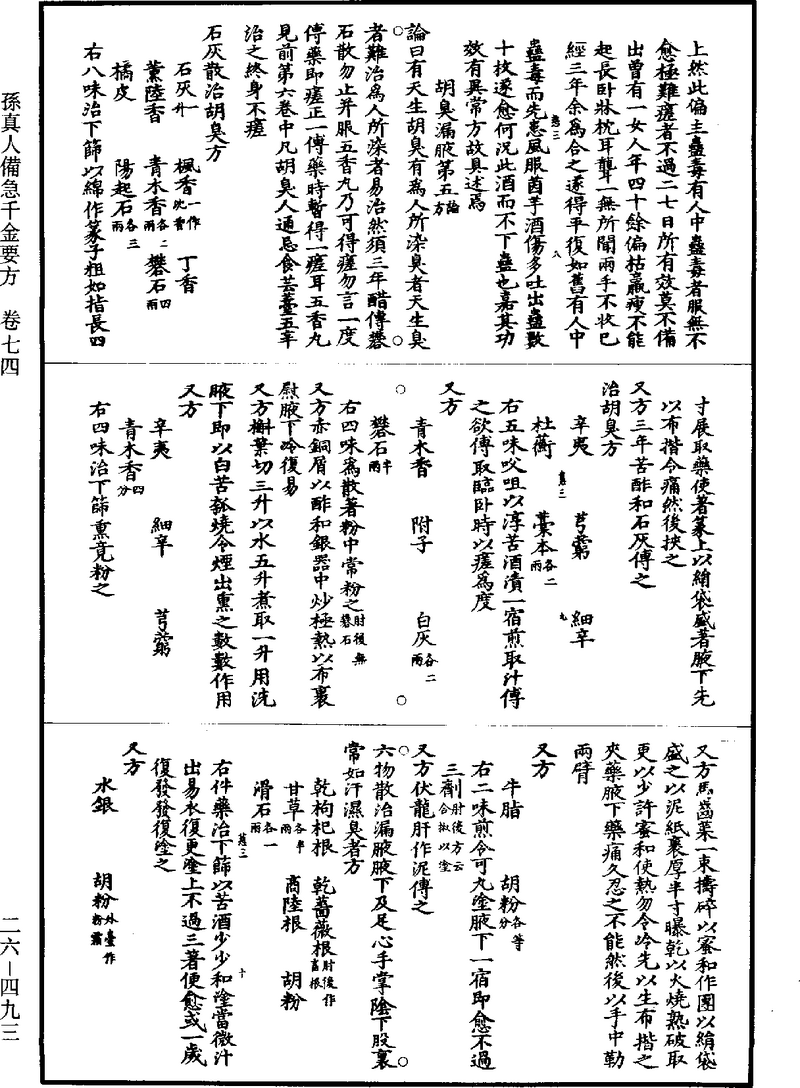 孫真人備急千金要方　卷七四
二六—四九三
上然此偏主蠱毒有人中蠱毒者服無不
愈極難瘥者不過二七日所有效莫不備
出曾有一女人年四十餘偏枯羸瘦不能
起長臥牀枕耳聾一無所聞兩手不收已
經三年余為合之遂得平復如舊有人中
蠱毒而先患風服茵芋酒傷多吐出蠱數
十枚遂愈何況此酒而不下蠱也嘉其功
效有異常方故具述焉
胡臭漏腋第五論方
論曰有天生胡臭有為人所染臭者天生臭
者難治為人所染者易治然須三年醋傅礬
石散勿止并服五香丸乃可得瘥勿言一度
傅藥即瘥正一傅藥時暫得一瘥耳五香丸
見前第六卷中凡胡臭人通忌食芸薹五辛
治之終身不瘥
石灰散治胡臭方
石灰一升　楓香一作沈香　丁香
薰陸香　青木香各二兩　礬石四兩
橘皮　陽起石各三兩
右八味治下篩以綿作篆子粗如指長四
寸展取藥使著篆上以絹袋盛著腋下先
以布揩令痛然後挾之
又方三年苦酢和石灰傅之
治胡臭方
辛夷　芎藭　細辛
杜蘅　藁本各二兩
右五味㕮咀以淳苦酒漬一宿煎取汁傅
之欲傅取臨臥時以瘥為度
又方
青木香　附子　白灰各二兩
礬石半兩
右四味為散著粉中常粉之肘後無礬石
又方赤銅屑以酢和銀器中炒極熱以布裹
慰腋下冷復易
又方槲葉切三升以水五升煮取一升用洗
腋下即以白苦瓠燒令煙出熏之數數作用
又方
辛夷　細辛　芎藭
青木香四分
右四味治下篩熏竟粉之
又方馬齒菜一束擣碎以蜜和作團以絹袋
盛之以泥紙裹厚半寸曝乾以火燒熟破取
更以少許蜜和使熱勿令冷先以生布揩之
夾藥腋下藥痛久忍之不能然後以手巾勒
兩臂
又方
牛脂　胡粉各等分
右二味煎令可丸塗腋下一宿即愈不過
三劑肘後方云合椒以塗
又方伏龍肝作泥傅之
六物散治漏腋腋下及足心手掌陰下股裏
常如汗濕臭者方
乾枸杞根　乾薔薇根肘後作畜根
甘草各半兩　商陸根　胡粉
滑石各一兩
右件藥治下篩以苦酒少少和塗當微汁
出易衣復更塗上不過三著便愈或一歲
復發發復塗之
又方
水銀　胡粉外臺作粉霜